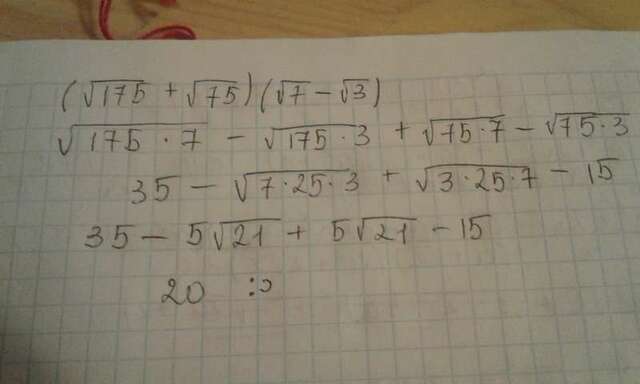 (√175 + √75)(√7 − √3)
√175·7 − √175·3 + √75·7 − √75·3
35 − √7·25·3 + √3·25·7 − 15
35 − 5√21 + 5√21 − 15
20 :)